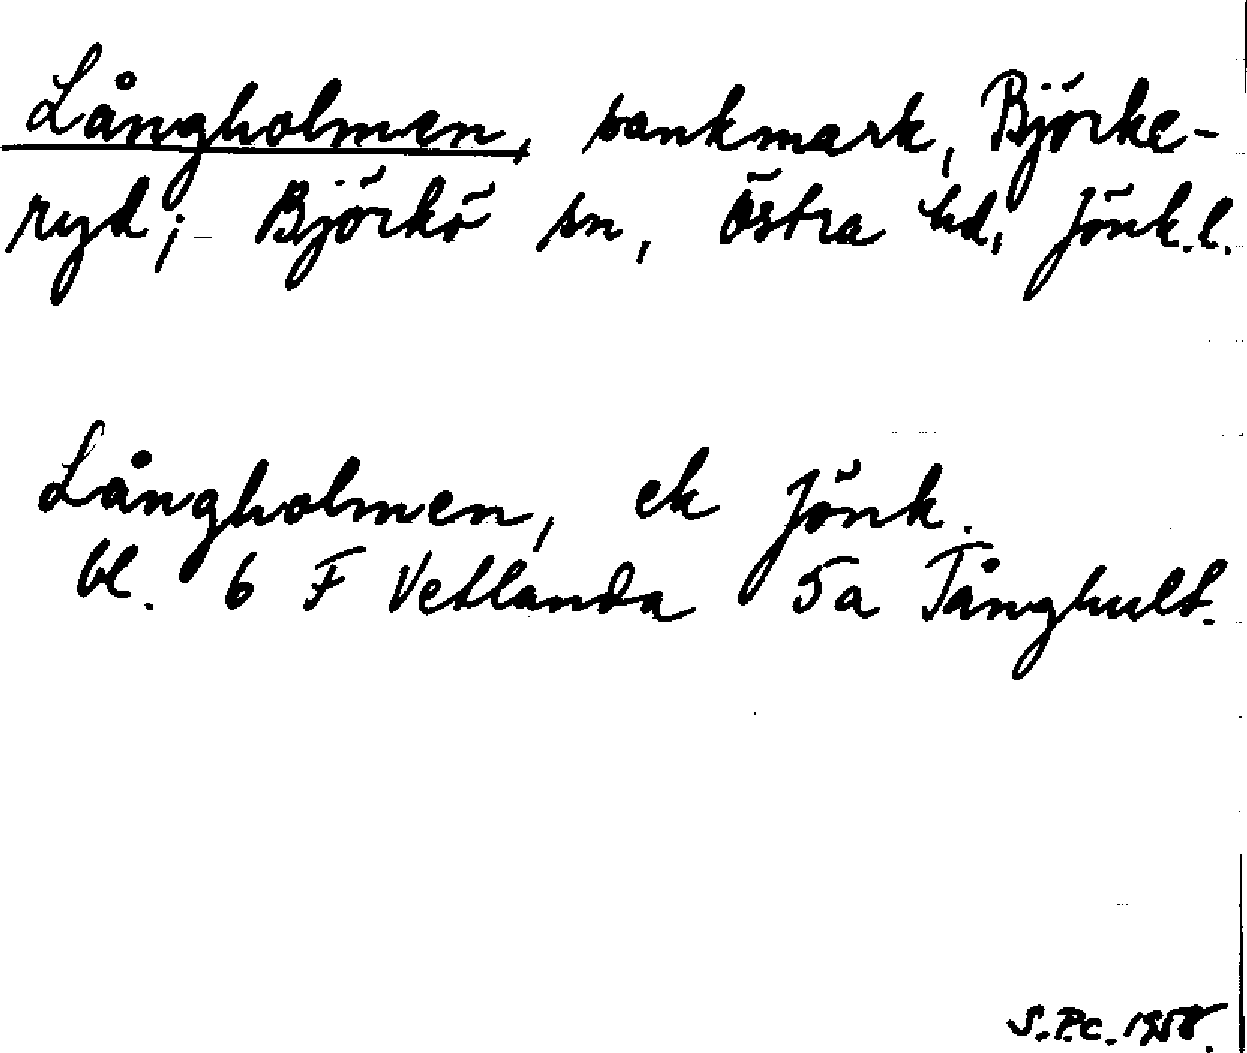 Långholmen, sankmark, Björke-
ryd; Björkö sn, Östra hd, Jönk.l.
Långholmen, ek Jönk.
bl. 6 F Vetlanda 5a Tånghult.
S.P.C. 1958.